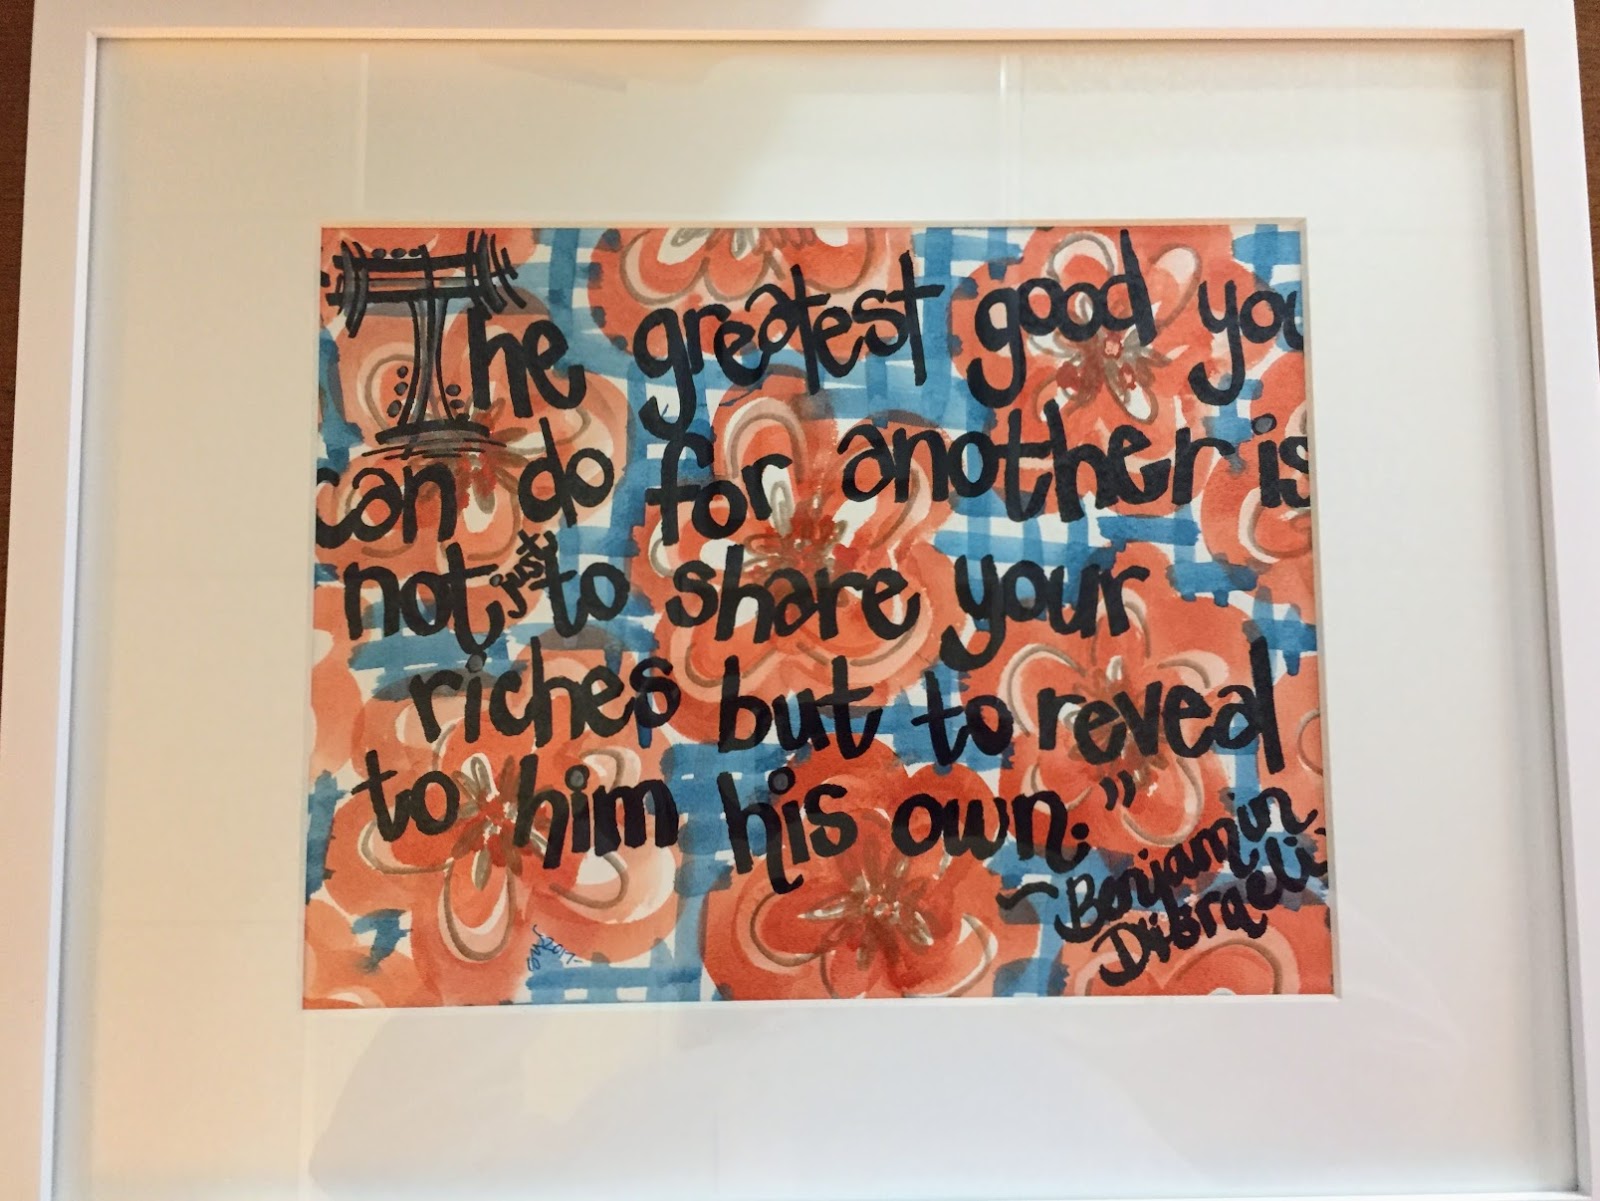 The greatest good you
can do for another is
not just to share your
riches but to reveal
to him his own."
~Benjamin
Disraeli
2017